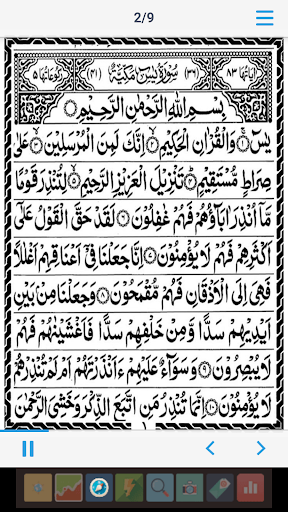 2/9
اٰیَاتُہَا ۸۳ (۳۶) سُوْرَۃُ یٰسٓ مَکِّیَّۃٌ (۴۱) رُکُوْعَاتُہَا ۵
بِسْمِ اللّٰهِ الرَّحْمٰنِ الرَّحِیْمِ
یٰسٓ ۚ وَالْقُرْاٰنِ الْحَكِیْمِ ۙ اِنَّكَ لَمِنَ الْمُرْسَلِیْنَ ۙ عَلٰی
صِرَاطٍ مُّسْتَقِیْمٍ ؕ تَنْزِیْلَ الْعَزِیْزِ الرَّحِیْمِ ۙ لِتُنْذِرَ قَوْمًا
مَّاۤ اُنْذِرَ اٰبَآؤُهُمْ فَهُمْ غٰفِلُوْنَ ۝ لَقَدْ حَقَّ الْقَوْلُ عَلٰۤی
اَكْثَرِهِمْ فَهُمْ لَا یُؤْمِنُوْنَ ۝ اِنَّا جَعَلْنَا فِیْۤ اَعْنَاقِهِمْ اَغْلٰلًا
فَهِیَ اِلَی الْاَذْقَانِ فَهُمْ مُّقْمَحُوْنَ ۝ وَجَعَلْنَا مِنْۢ بَیْنِ
اَیْدِیْهِمْ سَدًّا وَّمِنْ خَلْفِهِمْ سَدًّا فَاَغْشَیْنٰهُمْ فَهُمْ
لَا یُبْصِرُوْنَ ۝ وَسَوَآءٌ عَلَیْهِمْ ءَاَنْذَرْتَهُمْ اَمْ لَمْ تُنْذِرْهُمْ
لَا یُؤْمِنُوْنَ ۝ اِنَّمَا تُنْذِرُ مَنِ اتَّبَعَ الذِّكْرَ وَخَشِیَ الرَّحْمٰنَ